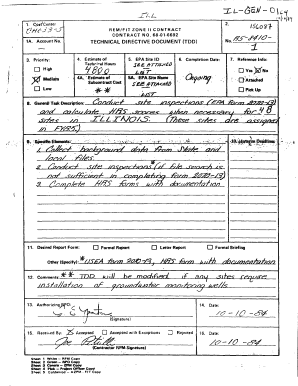 IL-L
IL-GEN-
1. Cost Center
REM/FIT ZONE II CONTRACT
CONTRACT NO. 68-01-6692
TECHNICAL DIRECTIVE DOCUMENT (TDD)
2.
No.
1A. Account No.:
R5-8410-
1
3. Priority:
High
Medium
Low
4. Estimate of
Technical Hours:
4800
4A. Estimate of
Subcontract Cost
5. EPA Site ID
SEE ATTACHED
LIST
5A. EPA Site Name
SEE ATTACHED
LIST
6. Completion Date:
Ongoing
7. Reference Info:
Yes No
Attached
Pick Up
8. General Task Description: Conduct site inspections (EPA form 2070-13)
and calculate HRS scores when necessary for 48
sites in ILLINOIS. (These sites are assigned
in FY85)
9. Specific Elements:
10. Interim Deadlines
1. Collect background data from State and
local files.
2. Conduct site inspections* (if file search is
not sufficient in completing form 2070-13)
3. Complete HRS forms with documentation
11. Desired Report Form:
Formal Report
Letter Report
Formal Briefing
Other (Specify): *USEPA form 2070-13, HRS form with documentation
12. Comments: ** TDD will be modified if any sites require
installation of groundwater monitoring wells
13. Authorizing RPO:
(Signature)
14. Date:
10-10-84
15. Received By:
Accepted
Accepted with Exceptions
Rejected
(Contractor RPM Signature)
16. Date:
10-10-84